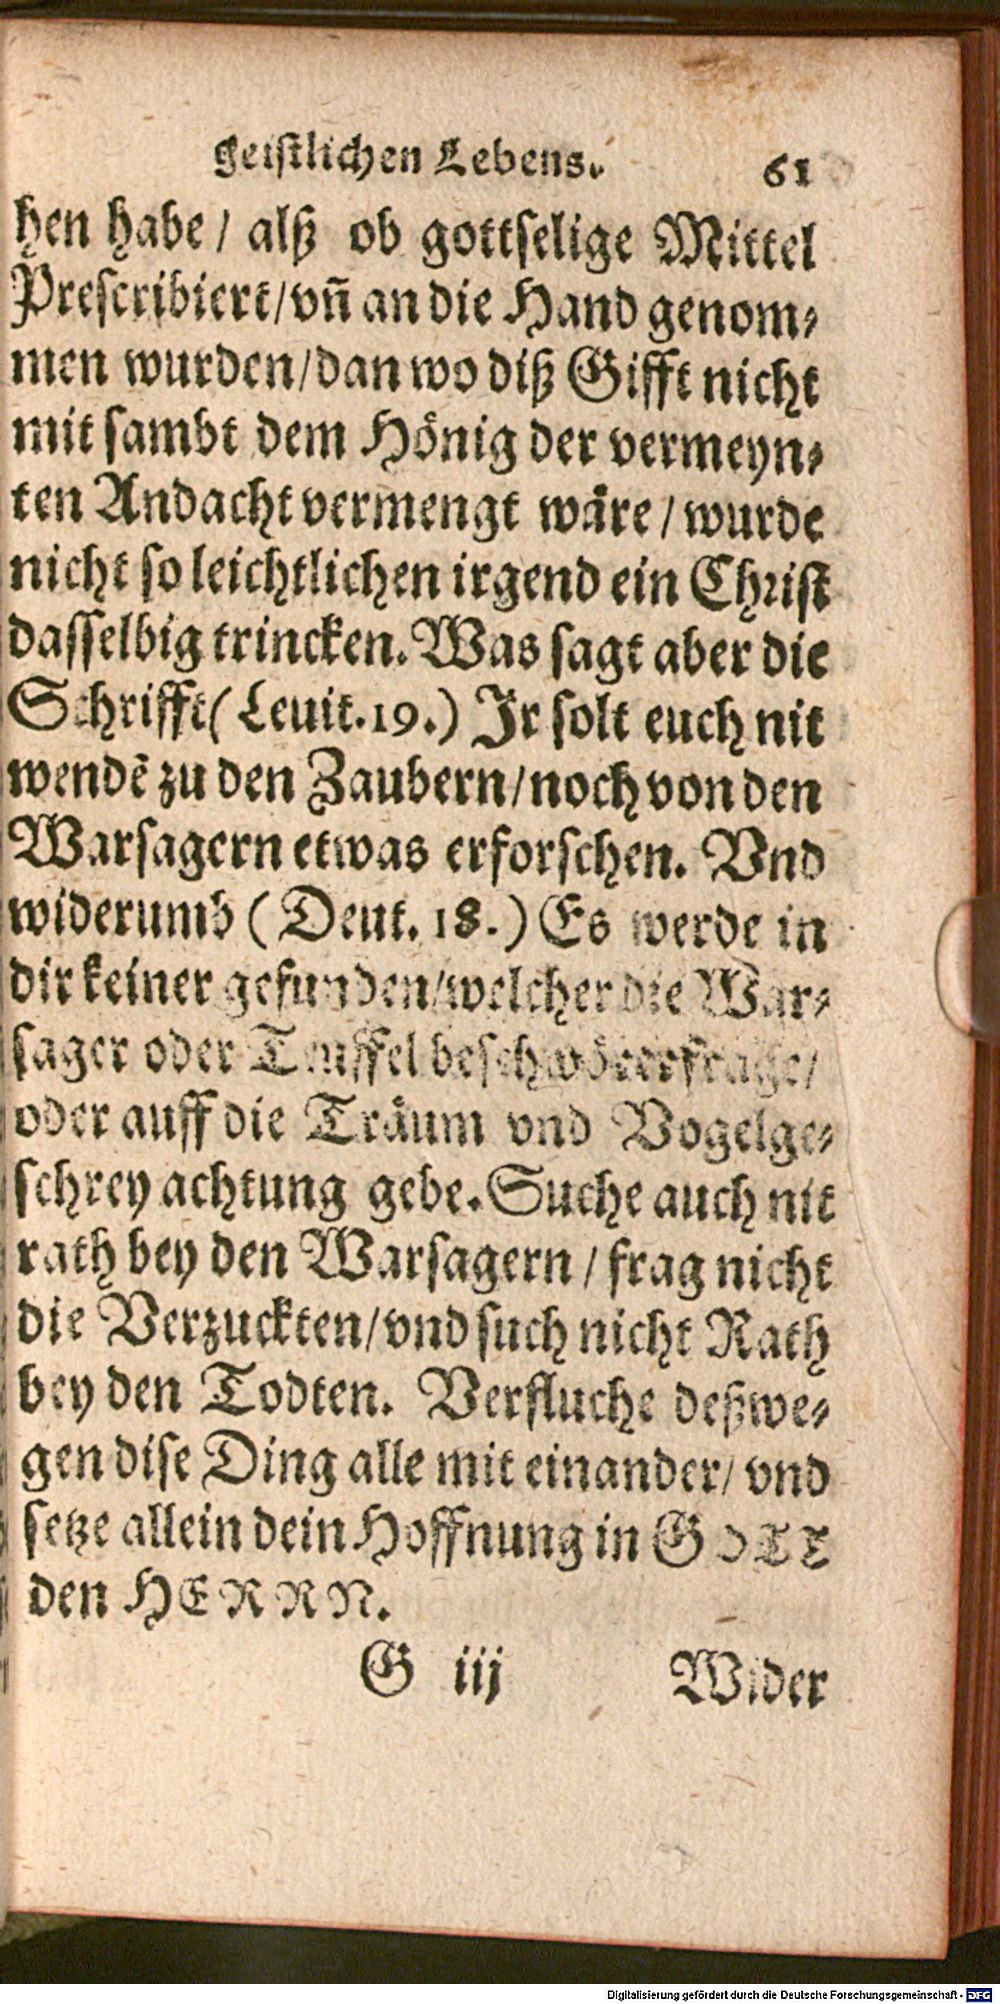 geistlichen Lebens. 61
hen habe / alß ob gottselige Mittel
Prescribiert/vñ an die Hand genom⸗
men wurden/dan wo diß Gifft nicht
mit sambt dem Hönig der vermeyn⸗
ten Andacht vermengt wäre / wurde
nicht so leichtlichen irgend ein Christ
dasselbig trincken. Was sagt aber die
Schrifft( Leuit. 19.) Jr solt euch nit
wendẽ zu den Zaubern/noch von den
Warsagern etwas erforschen. Vnd
widerumb ( Deut. 18.) Es werde in
dir keiner gefunden/welcher die War⸗
sager oder Teuffel beschwörer frage/
oder auff die Träum vnd Vogelge⸗
schrey achtung gebe. Suche auch nit
rath bey den Warsagern / frag nicht
die Verzuckten/vnd such nicht Rath
bey den Todten. Verfluche deßwe⸗
gen dise Ding alle mit einander/ vnd
setze allein dein Hoffnung in GOTT
den HERRN.
G iij Wider
Digitalisierung gefördert durch die Deutsche Forschungsgemeinschaft - DFG